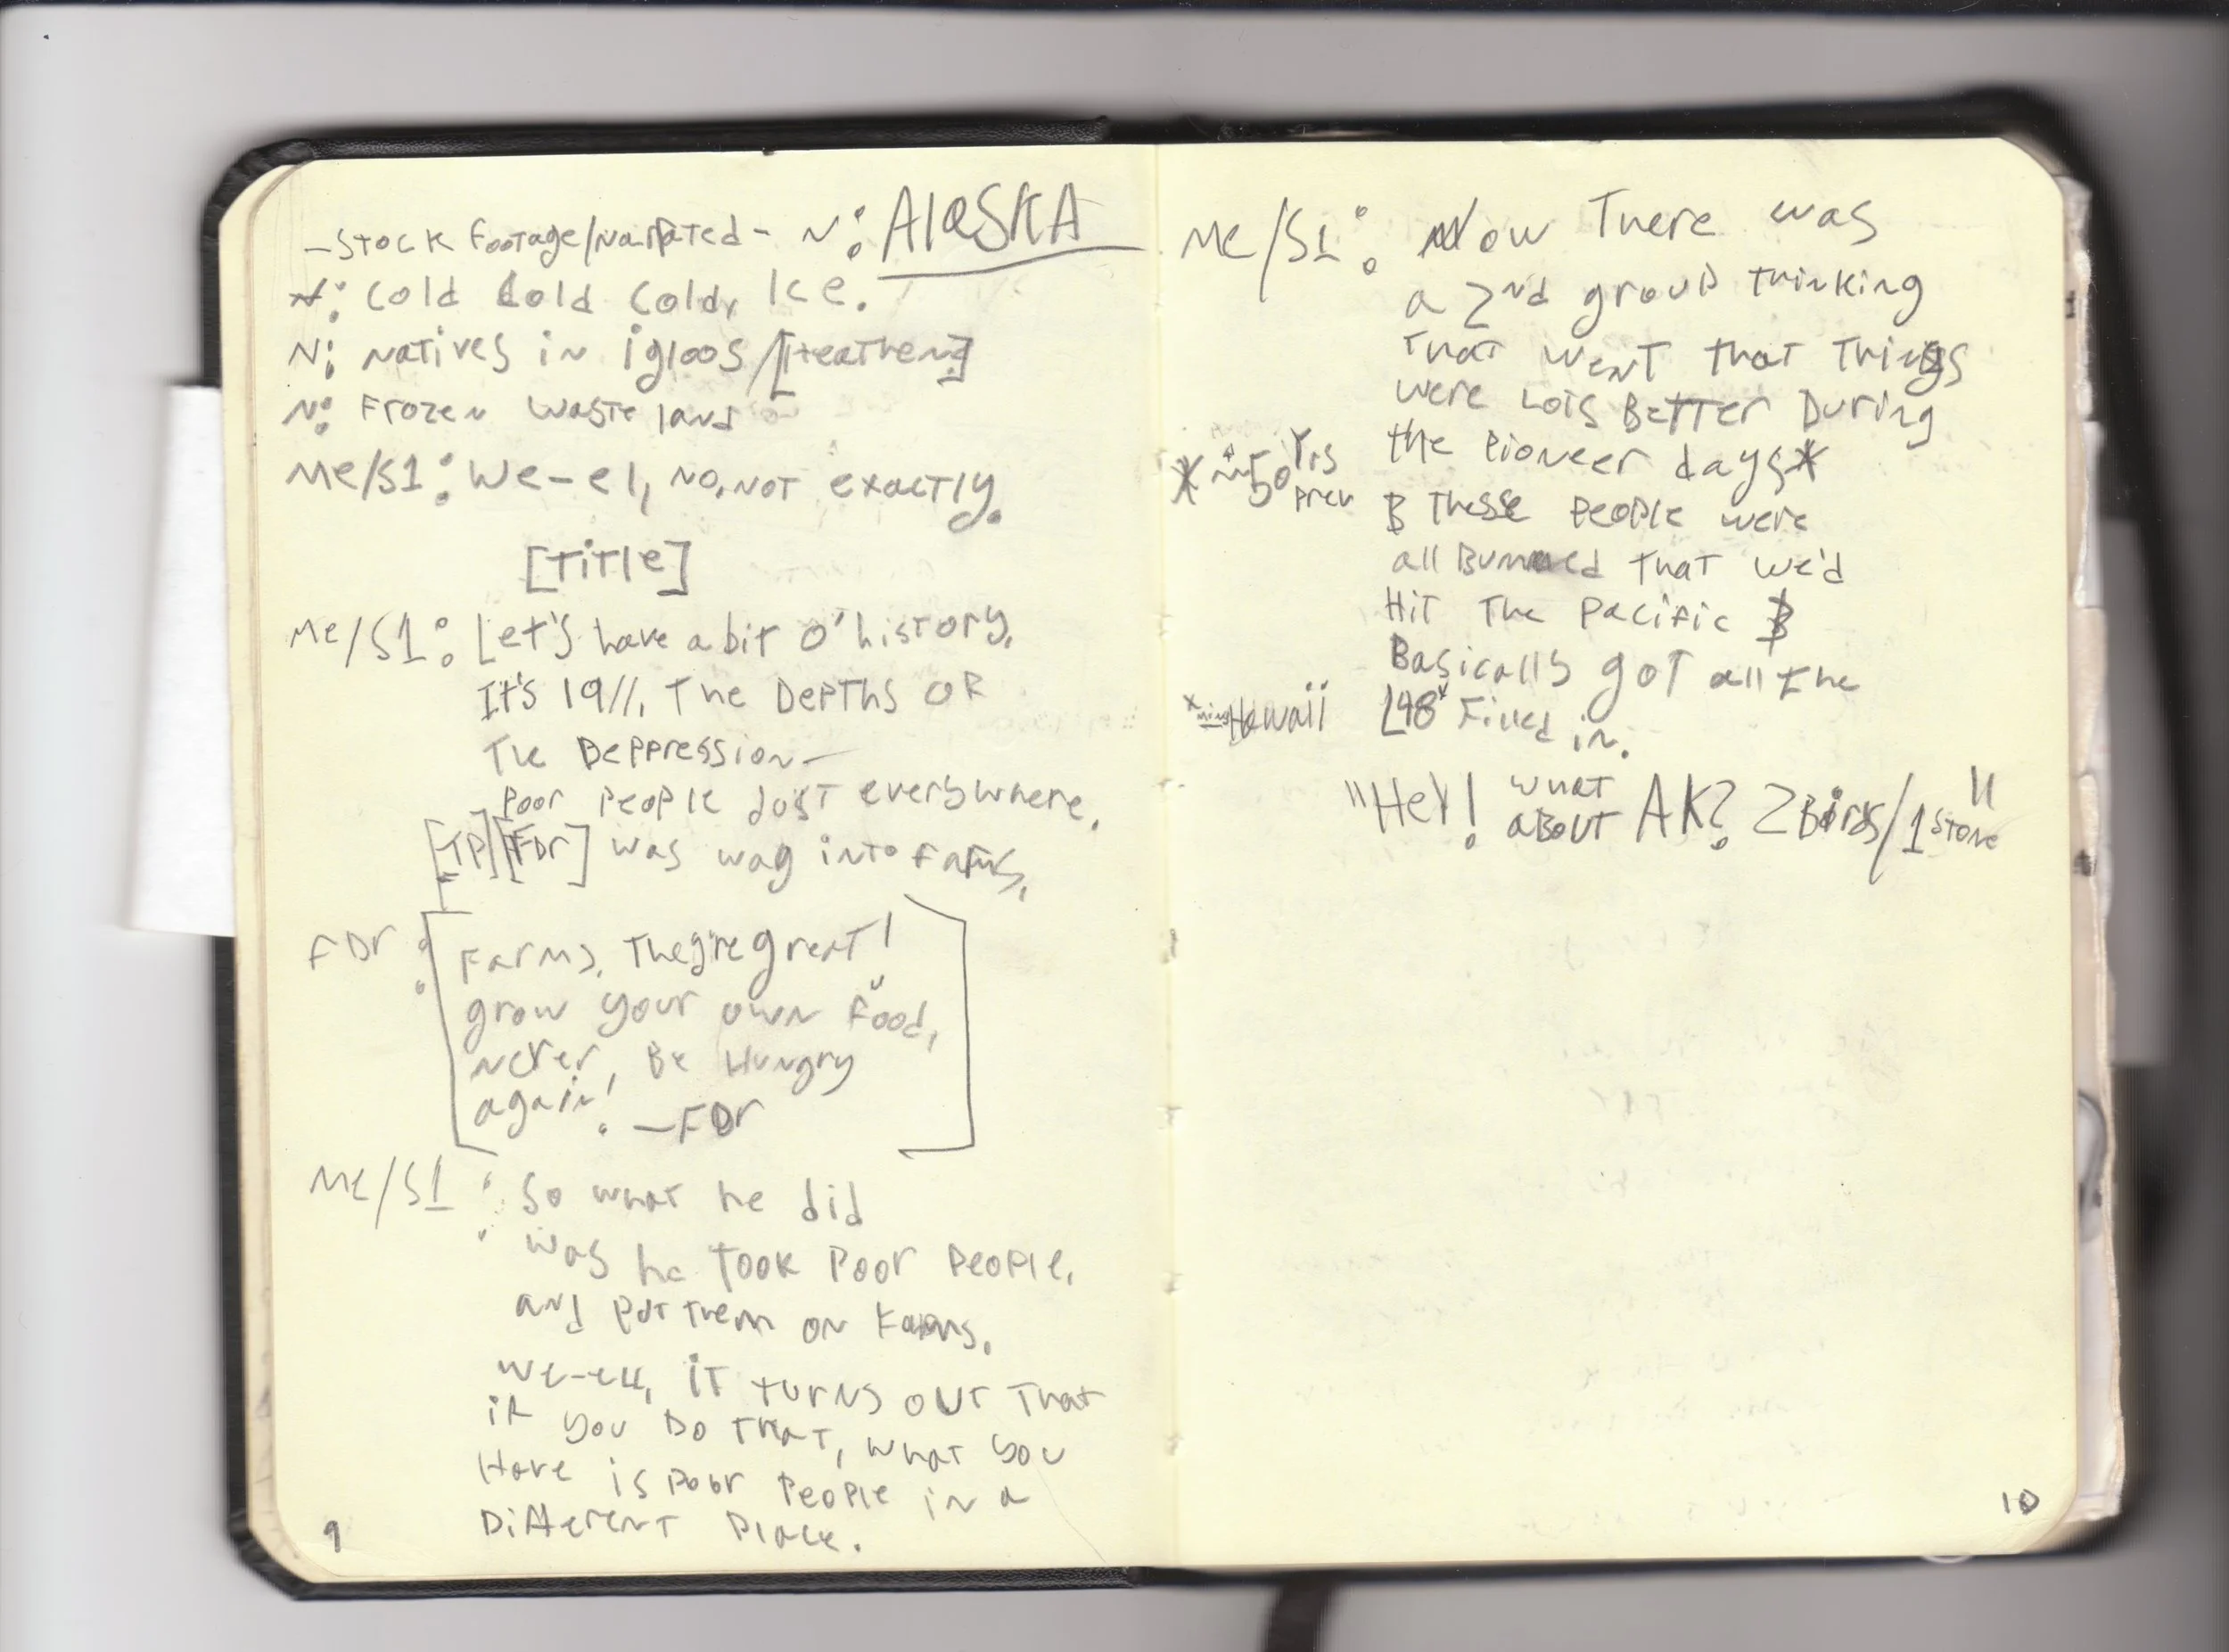 -Stock Footage/Narrated- N: AlaSKA
N: Cold Cold Cold, Ice.
N: Natives in igloos/[Heathens]
N: Frozen Waste land
Me/S1: We-el, No, NOT exactly.
[Title]
Me/S1: Let's have a bit o' history.
It's 19//, The Depths OF
The Deppression-
Poor People dust everywhere.
[FDr] was way into Farms.
FDr: [Farms, They're great!
grow your own food,
never, Be Hungry
again! -FDr]
Me/S1: So what he did
was he Took Poor People,
and put them on Farms.
We-ell, iT turns OUT That
if you Do THAT, what you
Have is Poor People in a
Different Place.
9
Me/S1: Now There was
a 2nd group thinking
That went that Things
were Lots Better During
the Pioneer days*
* ~50 Yrs Prev
& These People were
all Bummed That we'd
Hit The Pacific &
Basically got all the
L48* Filled in.
* Hawaii
"Hey! what about AK? 2 Birds/1 Stone"
10